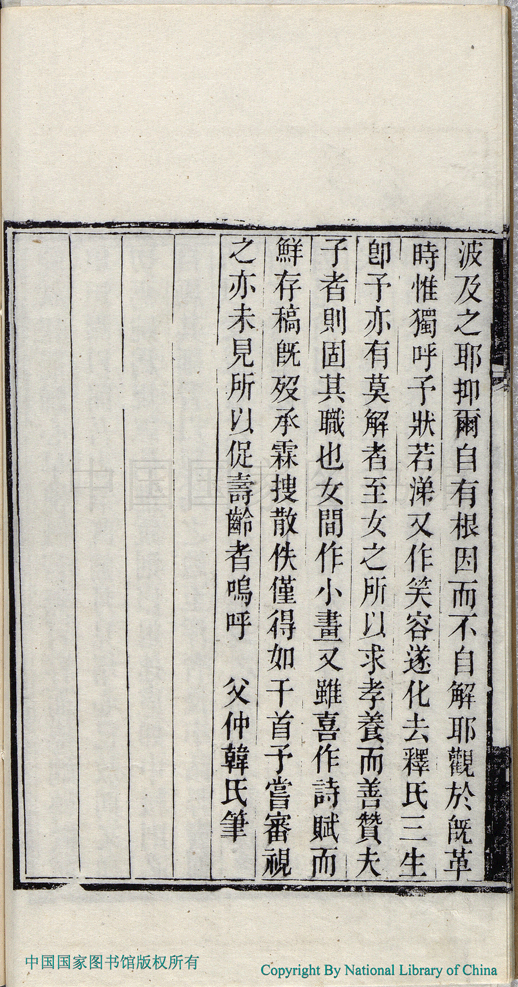 波及之耶抑爾自有根因而不自解耶觀於旣革
時惟獨呼予狀若涕又作笑容遂化去釋氏三生
卽予亦有莫解者至女之所以求孝養而善贊夫
子者則固其職也女間作小畫又雖喜作詩賦而
鮮存稿旣歿承霖搜散佚僅得如干首予嘗審視
之亦未見所以促壽齡者嗚呼　父仲韓氏筆
中国国家图书馆版权所有
Copyright By National Library of China